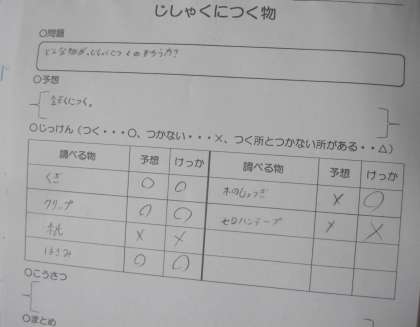 じしゃくにつく物
○問題
どんな物が、じしゃくにつくのだろうか?
○予想
金ぞくにつく。
○じっけん（つく・・・○、つかない・・・×、つく所とつかない所がある・・△）
調べる物 予想 けっか 調べる物 予想 けっか
くぎ ○ ○ 木のじょうぎ × ○
クリップ ○ ○ セロハンテープ × ×
紙 × ×
はさみ ○ ○
○こうさつ
○まとめ